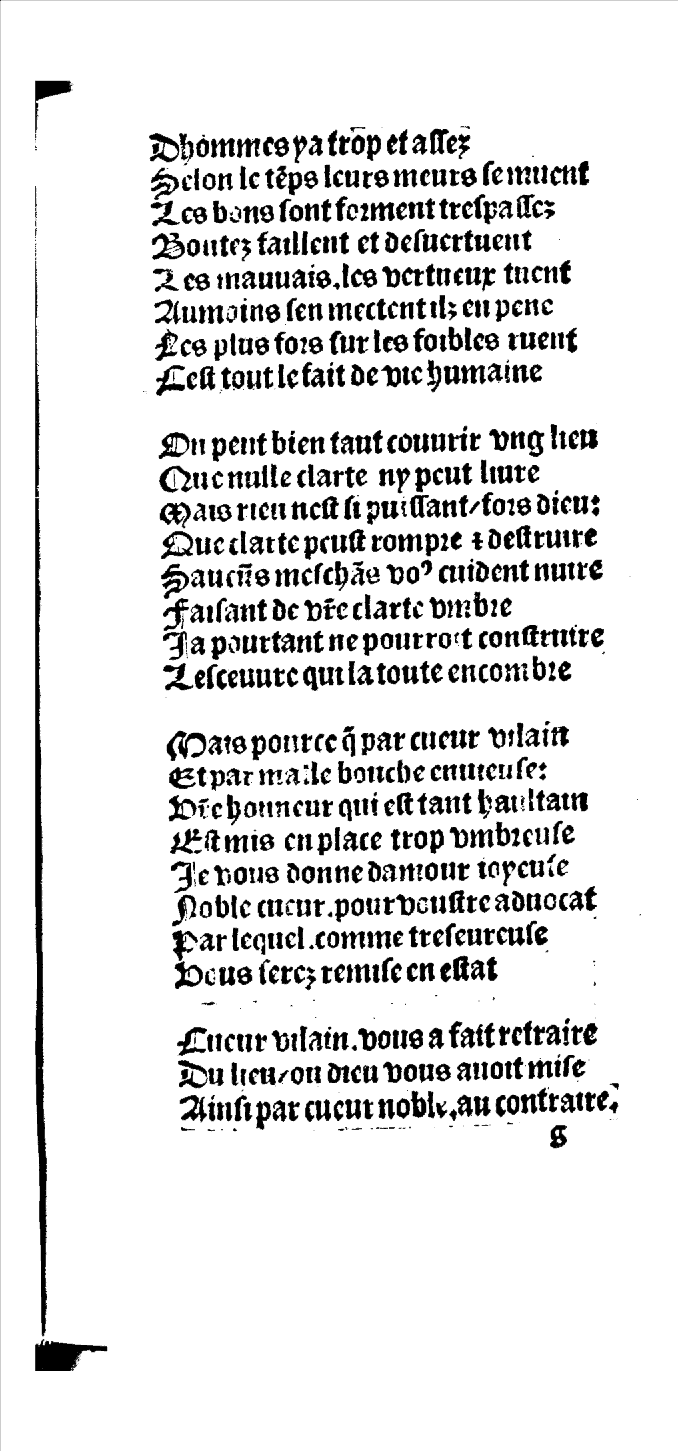 Dhommes ya trop et assez
Selon le tẽps leurs meurs se muent
Les bons sont forment trespassez
Boutez faillent et desuertuent
Les mauuais.les vertueux tuent
Aumoins sen mectent ilz en pene
Les plus fors sur les foibles ruent
Cest tout le fait de vie humaine

On peut bien tant couurir vng lieu
Que nulle clarte ny peut luire
Mais rien nest si puissant/fors dieu:
Que clarte peust rompre ⁊ destruire
Saucũs meschãs voꝰ cuident nuire
Faisant de vr̃e clarte vmbre
Ja pourtant ne pourroit construire
Lesceuure qui la toute encombre

Mais pource q̃ par cueur vilain
Et par malle bouche enuieuse:
Vr̃e honneur qui est tant haultain
Est mis en place trop vmbreuse
Je vous donne damour ioyeuse
Noble cueur.pour voustre aduocat
Par lequel.comme treseureuse
Vous serez remise en estat

Cueur vilain.vous a fait retraire
Du lieu/ou dieu vous auoit mise
Ainsi par cueur noble.au contraire.
g